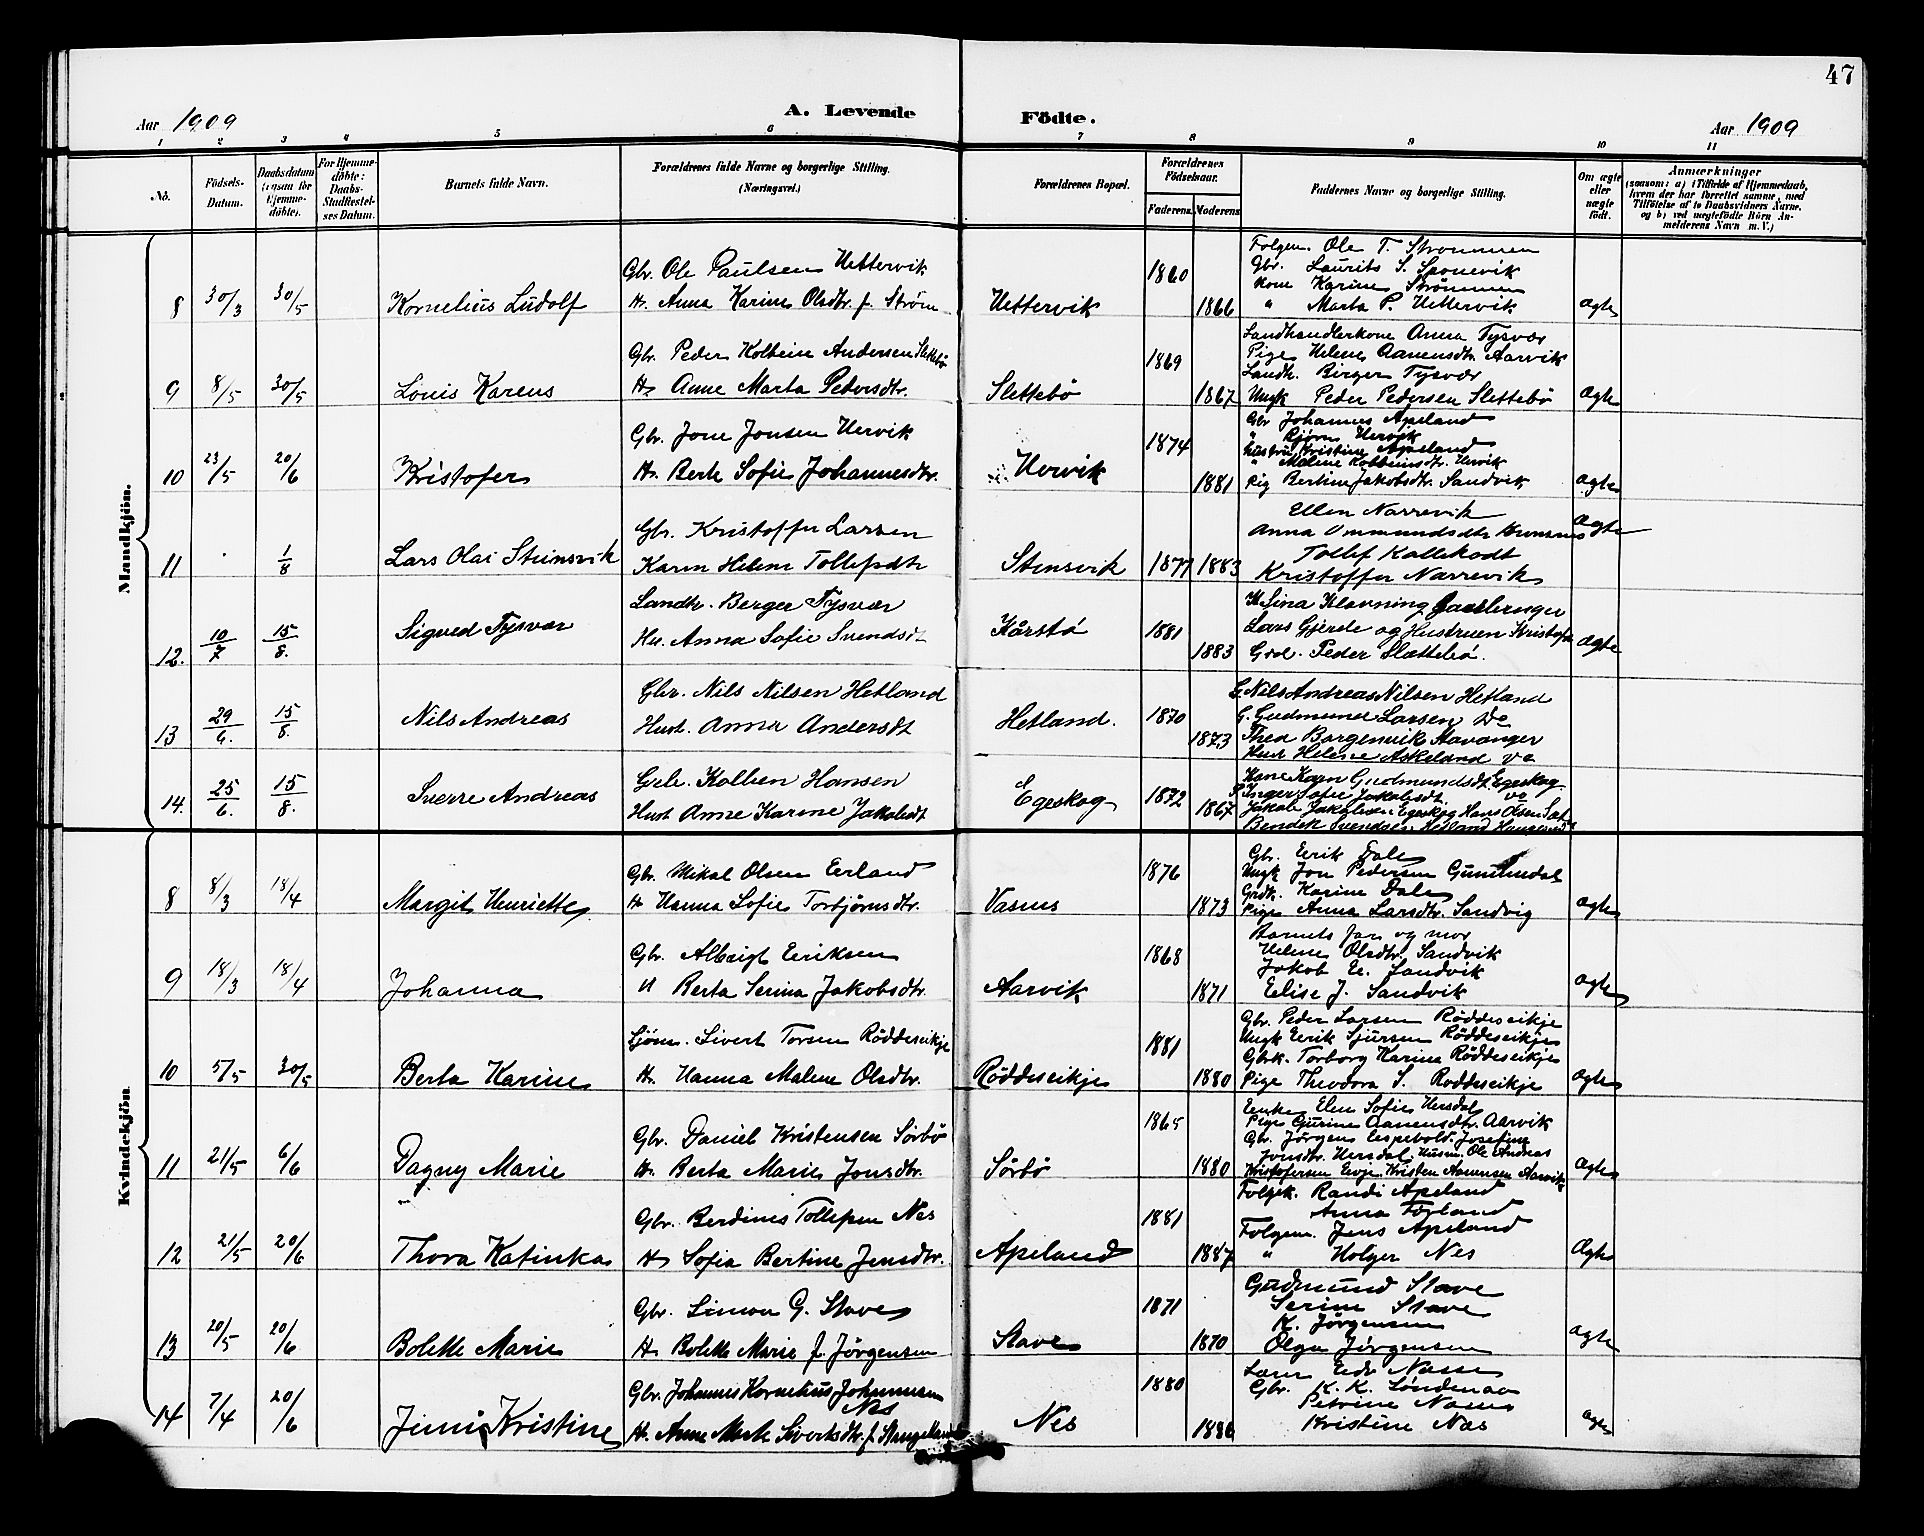 47
Aar 1909
A. Levende
Födte.
Aar 1909
1 2 3 4 5 6 7 8 9 10 11
No.
Födsels-Datum.
Daabsdatum (ogsaa for Hjemme-döbte).
For Hjemme-döbte: Daabs-Stadfæstelses Datum.
Barnets fulde Navn.
Forældrenes fulde Navne og borgerlige Stilling.
(Næringsvei.)
Forældrenes Bopæl.
Forældrenes Födselsaar.
Faderens. Moderens.
Faddernes Navne og borgerlige Stilling.
Om ægte eller uægte födt.
Anmærkninger
(saasom: a) i Tilfælde af Hjemmedaab, hvem der har forrettet samme, med Tilföielse af to Daabsvidners Navne, og b) ved uægtefödte Börn Anmelderens Navn m. V.)
Mandkjön.
8 30/3 30/5 Kornelius Ludolf
Gbr. Ole Paulsen Hettervik
H. Anna Karine Olsdtr. f. Ström
Hettervik 1860 1866
Folgem. Ole T. Strommen
Gbr. Laurits S. Sponevik
Kone Karine Strömmen
" Marta P. Hettervik
Ægte
9 8/5 30/5 Louis Karens
Gbr. Peder Kolbein Andersen Slettebö
H. Anne Marta Pedersdtr.
Slettebö 1869 1867
Landhandlerkone Anna Tysvær
Pige Helene Aanensdtr. Aarvik
Landh. Birger Tysvær
Ungk Peder Pedersen Slettebö
Ægte
10 23/5 20/6 Kristofer
Gbr. Jone Jonsen Hervik
H. Berte Sofie Johannesdtr.
Hervik 1874 1881
Gbr Johannes Apeland
" Björn Hervik
Hustru Kristine Apeland
" Maline Kolbeinsdtr. Hervik
Pig Bertine Jakobsdtr. Sandvik
Ægte
11 1/8 Lars Olai Steinsvik
Gbr. Kristoffer Larsen
Karen Helene Tollefsdtr
Stensvik 1877 1883
Ellen Narrevik
Anna Ommundsdtr
Tollef Kallekodt
Kristoffer Narrevik
Ægte
12. 10/7 15/8. Sigved Tysvær
Landh. Berger Tysvær
Hu. Anna Sofie Svendsdt
Kårstö 1881 1883
K. Sina Klovning
Lars Gjerde og Hustruen Kristofa
Grd. Peder Slettebö.
Ægte
13 29/6. 15/8. Nils Andreas
Gbr. Nils Nilsen Hetland
Hust. Anna Andersdt
Hetland. 1870 1873
G. Nils Andreas Nilsen Hetland
G. Gudmund Larsen Do
Thea Borgenvik Stavanger
Hust Helene Askeland
14. 25/6. 15/8. Sverre Andreas
Gbr. Kolben Hansen
Hust Anne Karine Jakobsdt
Egeskog 1872 1867
Kone Karn Gudmundsdt Egeskog
P. Inger Sofie Jakobsdt. Do
Jakob Jakobsen Egeskog Hans Olsen
Bendik Svendsen Hetland
Kvindekjön
8 8/3 18/4 Margit Henriette
Gbr. Mikal Olsen Eerland
H. Hanna Sofie Torbjörnsdtr.
Vasnes 1876 1873
Gbr. Eerik Dale
Ungk Jon Pedersen
Grdk. Karine Dale
Pige Anna Larsdtr. Sandvig
Ægte
9 18/3 18/4 Johanna
Gbr. Albrigt Eeriksen
H Berta Serina Jakobsdtr.
Aarvik 1868 1871
Barnets far og mor
Helene Olsdtr. Sandvik
Jakob E. Sandvik
Eelise J. Sandvik
Ægte
10 5/5 30/5 Berta Karine
Sjöm. Sivert Torsen Röddesvikje
H. Hanna Malene Olsdtr.
Röddesvikje 1881 1880
Gbr. Peder Larsen Röddesvikje
Ungk Eerik Sjursen Röddesvikje
Gbrk. Torborg Karine Röddesvikje
Pige Theodora S. Röddesvikje
Ægte
11 21/5 6/6 Dagny Marie
Gbr. Daniel Kristensen Sörbö
H. Berta Marie Jonsdtr.
Sörbö 1865 1880
Eenke Elen Sofie Hersdal
Pige Gurine Aanensdtr. Aarvik
Gbr. Jörgen Eespevold. Josefine
Jonsdtr. Hersdal Husm. Ole Andreas
Kristofersen Kristen Aanensen Aarvik
Ægte
12 21/5 20/6 Thora Katinka
Gbr. Berdines Tollefsen Nes
H. Sofia Bertine Jensdtr.
Apeland 1881 1887
Folgek. Randi Apeland
Anna Förland
Folgem. Jens Apeland
" Holger Nes
Ægte
13 20/5 20/6 Bolette Marie
Gbr. Simon G. Stave
H. Bolette Marie f. Jörgensen
Stave 1871 1870
Gudmund Stave
Serine Stave
K. Jörgensen
Olga Jörgensen
Ægte
14 7/4 20/6 Jenni Kristine
Gbr. Johannes Kornelius Johannesen Nes
H. Anne Marte Sivertsdtr. f. Stangeland
Nes 1880 1886
Lærer Nasse
Gbr. K. K. Söndenaa
Petrine Nasse
Kristine Næs
Ægte